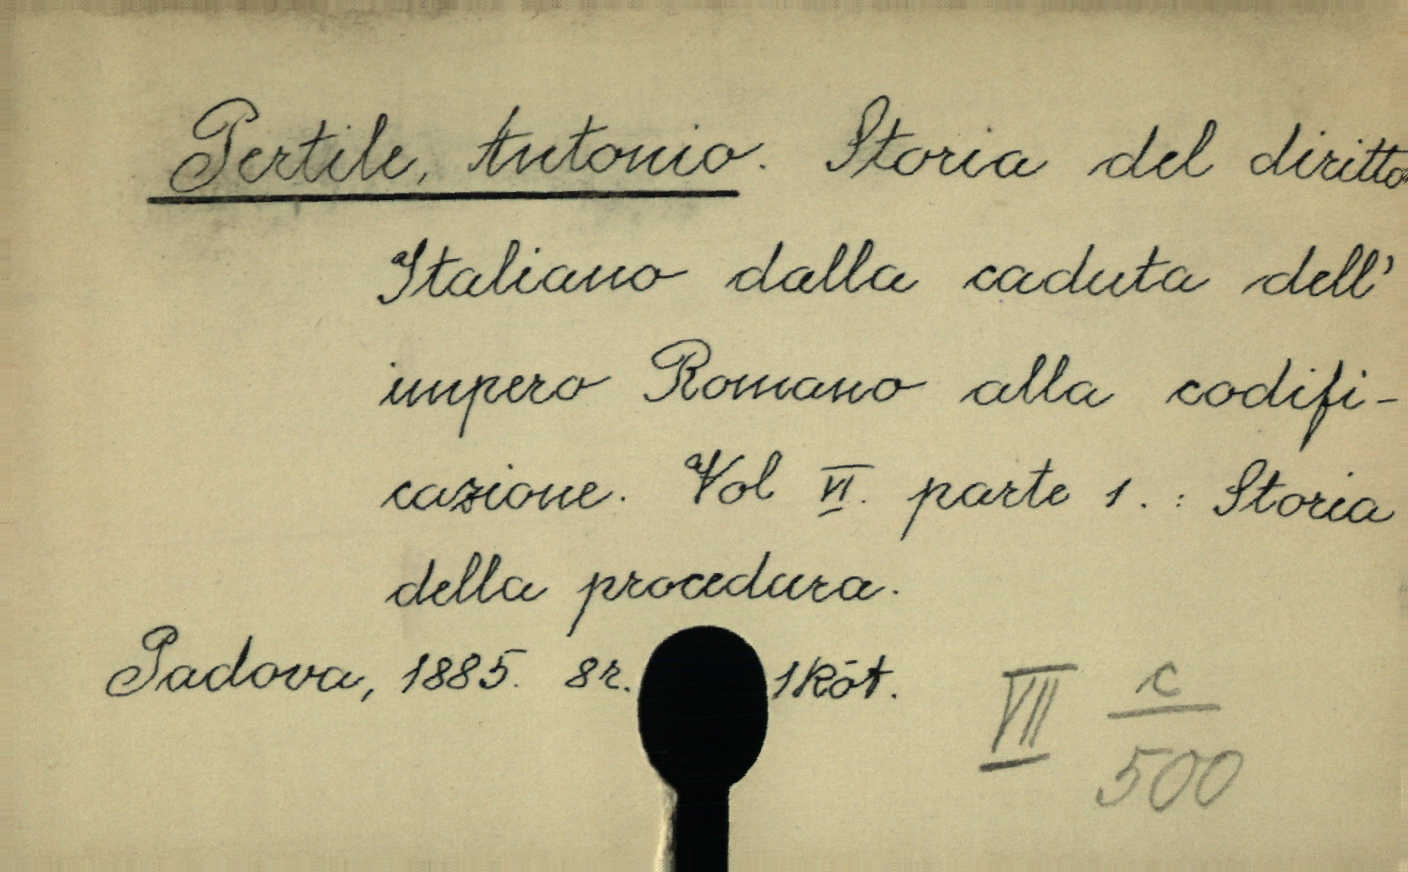 Pertile, Antonio. Storia del diritto
Italiano dalla caduta dell'
impero Romano alla codifi-
cazione. Vol VI. parte 1.: Storia
della procedura.
Padova, 1885. 8r. 1 köt.
VII c/500